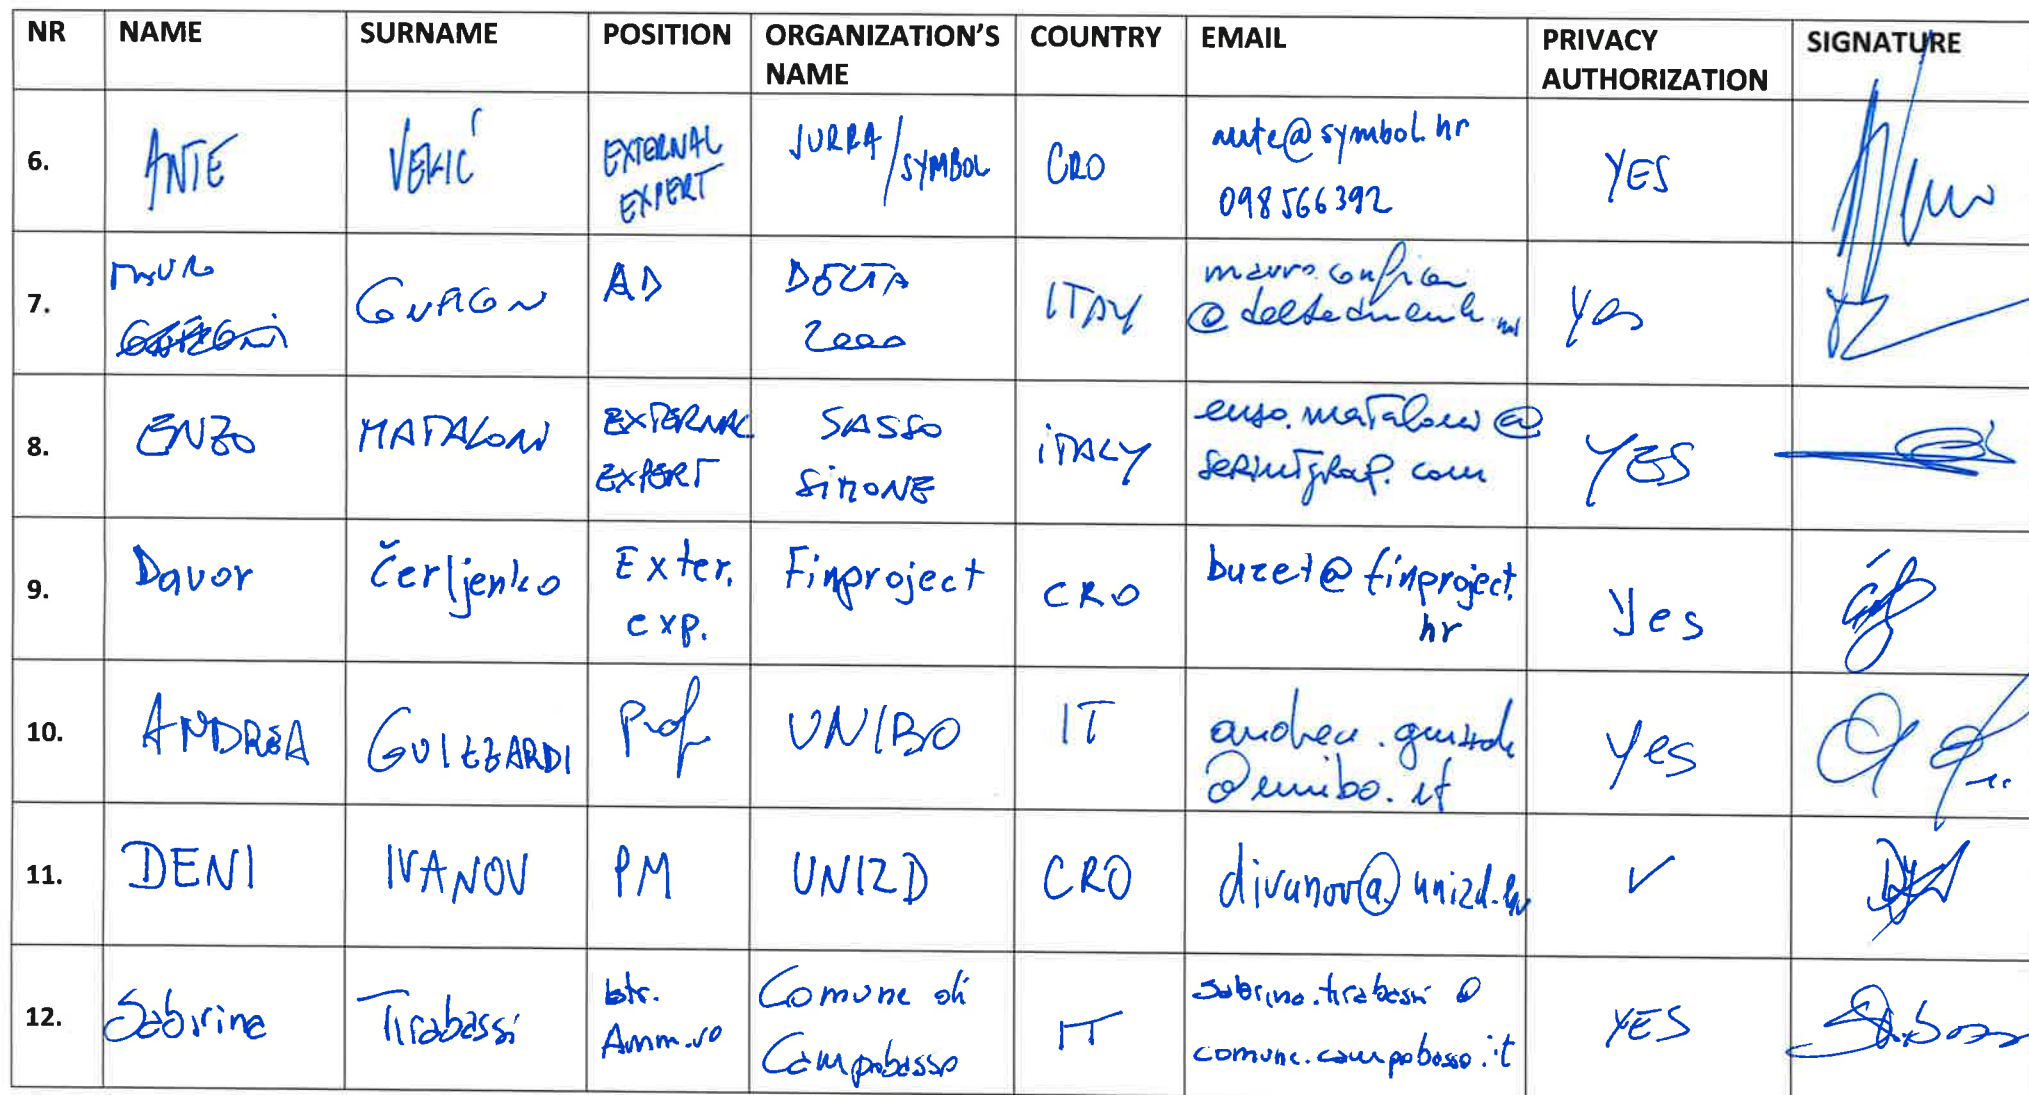 NR NAME SURNAME POSITION ORGANIZATION'S NAME COUNTRY EMAIL PRIVACY AUTHORIZATION SIGNATURE
6. ANTE VEKIĆ EXTERNAL EXPERT JURRA/SYMBOL CRO ante@symbol.hr 098 566392 YES
7. MAURO AD DELTA 2000 ITALY Yes
8. ENZO MATALONI EXTERNAL EXPERT SASSO SIMONE ITALY enzo.mataloni@ serintgraf.com YES
9. Davor Čerljenko Exter. exp. Finproject CRO buzet@finproject.hr Yes
10. ANDREA GUIZZARDI Prof UNIBO IT @unibo.it Yes
11. DENI IVANOV PM UNIZD CRO divanov@unizd.hr ✓
12. Sabrina Tirabassi Istr. Amm.vo Comune di Campobasso IT sabrina.tirabassi@ comune.campobasso.it YES